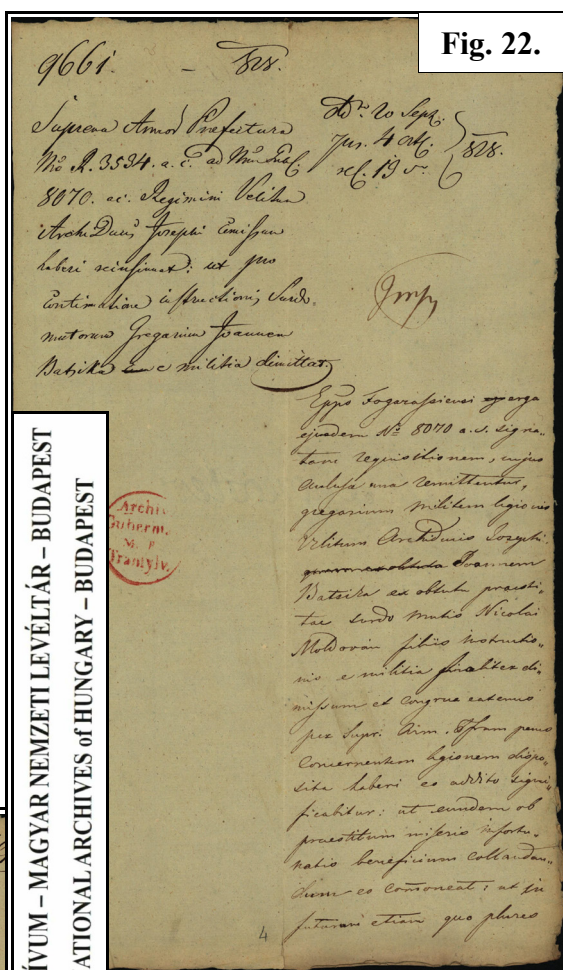 Fig. 22.
9661. — 828.
Suprema Armor Praefectura
No R. 3534. a. c. ad Num Gub:
8070. ac. Regimini Velitum
Archi Ducis Josephi
haberi reinsinuat: ut pro
continuatione instructionis Surdo
mutorum Gregarium Joannem
Batsika e militia dimittat.
20 Sept.
828.
Eppo Fogarassiensi erga
ejusdem No 8070 a. c. signa-
tam requisitionem, cujus
una remittuntur,
gregarium militem legionis
Velitum Archiducis Josephi
Joannem
Batsika ex obtutu praesti-
tae surdo mutis Nicolai
Moldován filiis instructio-
nis e militia finaliter di-
missum et congrua eatenus
per Supr. Arm. Pfram penes
concernentem legionem dispo-
sita haberi eo addito signi-
ficabitur: ut eundem ob
praestitum miseris infortu-
natis beneficium collaudan-
dum eo: ut in
futurum etiam quo plures
Archiv.
Gubern.
M. P.
Transylv.
4
ÍVUM – MAGYAR NEMZETI LEVÉLTÁR – BUDAPEST
ATIONAL ARCHIVES of HUNGARY – BUDAPEST